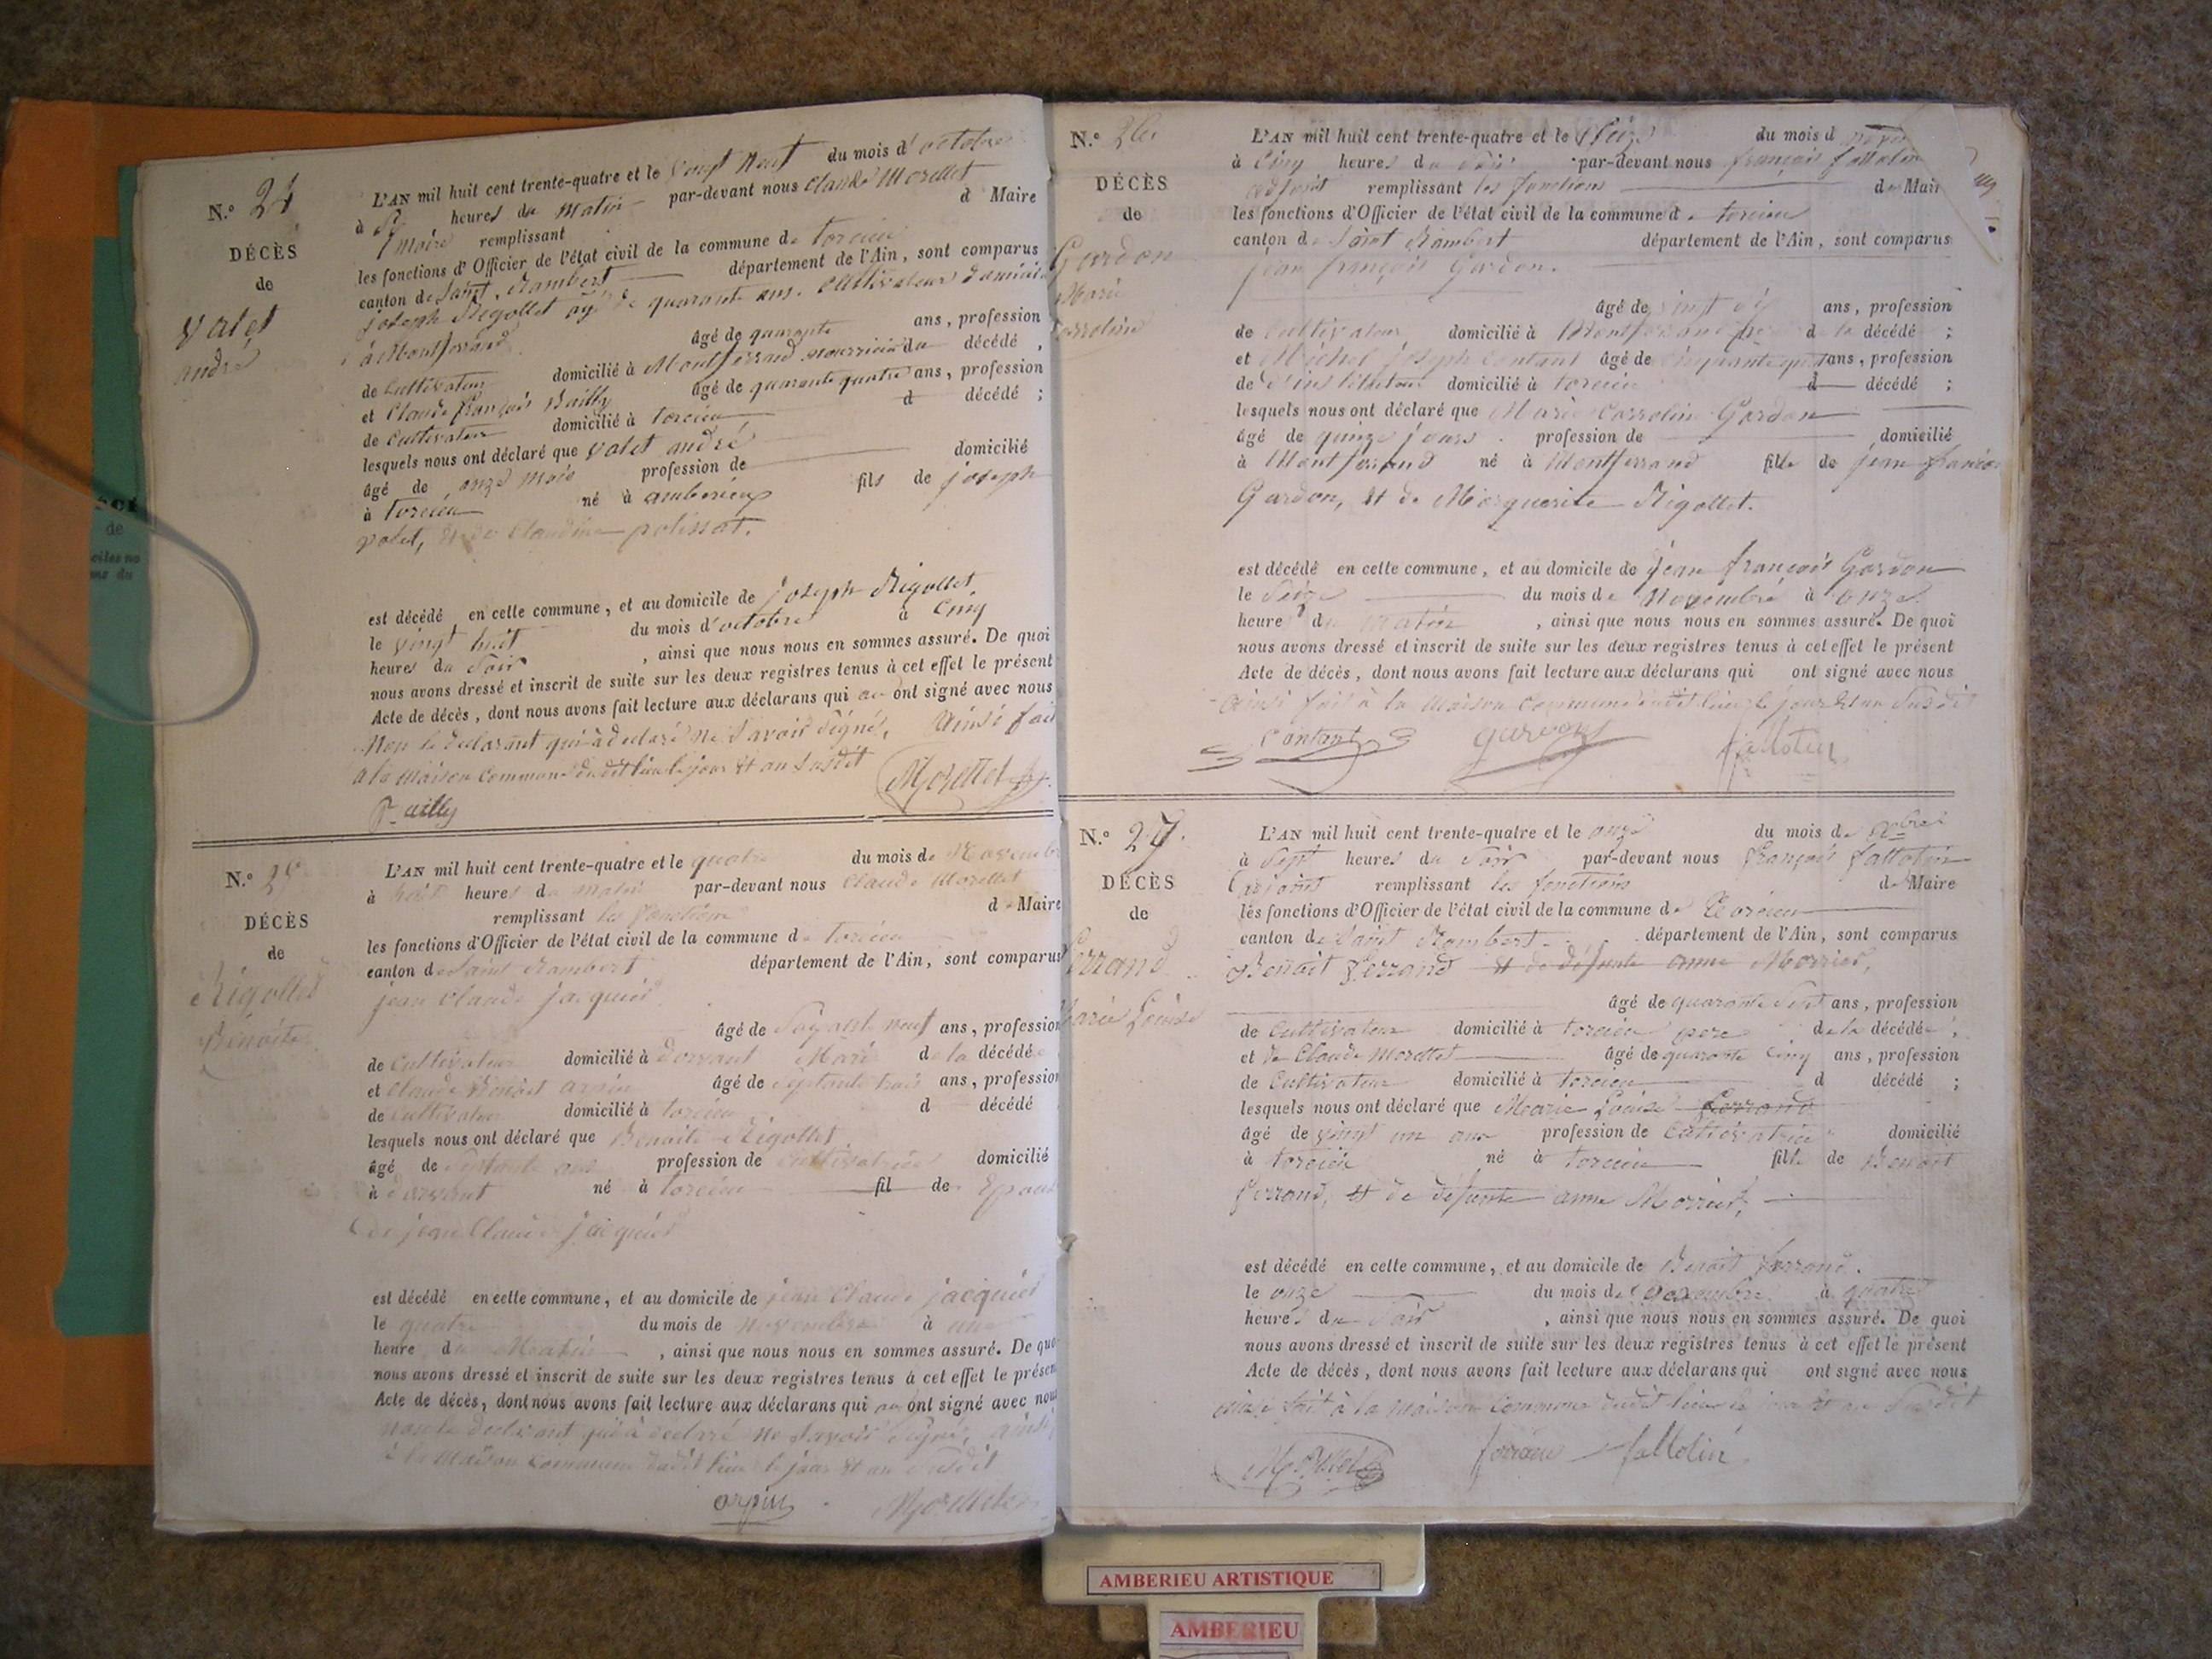 N.º 24
DÉCÈS
de
Valet
andré
L'AN mil huit cent trente-quatre et le vingt neuf du mois d'octobre
à heures du Matin par-devant nous Claude Morellet
Maire remplissant d Maire
les fonctions d'Officier de l'état civil de la commune de torcieu
canton de Saint Rambert département de l'Ain, sont comparus
joseph Rigollet agé de quarante ans. Cultivateur domicilié
à Montferrand âgé de quarante ans, profession
de Cultivateur domicilié à Montferrand nourricier du décédé,
et Claude françois Bailly âgé de quarante quatre ans, profession
de Cultivateur domicilié à torcieu d décédé ;
lesquels nous ont déclaré que Valet andré
âgé de onze mois profession de domicilié
à torcieu né à amberieux fils de joseph
valet, et de Claudine polissat.
est décédé en celle commune, et au domicile de joseph Rigollet
le vingt huit du mois d'octobre à Cinq
heures du Soir, ainsi que nous nous en sommes assuré. De quoi
nous avons dressé et inscrit de suite sur les deux registres tenus à cet effet le présent
Acte de décès, dont nous avons fait lecture aux déclarans qui ont signé avec nous
Non le declarant qui à declaré ne Savoir Signé, Ainsi fait
à la maison Commune dudit lieu le jour et an Susdit
Bailly Morellet
N.º 25
DÉCÈS
de
Rigollet
Benoite
L'AN mil huit cent trente-quatre et le quatre du mois de Novembre
à huit heures du matin par-devant nous Claude Morellet
remplissant les fonctions de Maire
les fonctions d'Officier de l'état civil de la commune de torcieu
canton de Saint Rambert département de l'Ain, sont comparus
jean Claude jacquier
âgé de Soixante neuf ans, profession
de Cultivateur domicilié à dorvant Mari de la décédé
et Claude Benoit arpin âgé de Septante trois ans, profession
de Cultivateur domicilié à torcieu d décédé
lesquels nous ont déclaré que Benoite Rigollet
âgé de Septante ans profession de Cultivatrice domicilié
à dorvant né à torcieu fil de Epouse
de jean Claude jacquier
est décédé en celle commune, et au domicile de jean Claude jacquier
le quatre du mois de novembre à une
heure du Matin, ainsi que nous nous en sommes assuré. De quoi
nous avons dressé et inscrit de suite sur les deux registres tenus à cet effet le présent
Acte de décès, dont nous avons fait lecture aux déclarans qui ont signé avec nous
non le declarant qui à declaré ne Savoir Signé, ainsi
à la maison Commune dudit lieu le jour et an Susdit
arpin Morellet
N.º 26
DÉCÈS
de
Gardon
Marie
Carroline
L'AN mil huit cent trente-quatre et le Seize du mois d
à Cinq heures du Soir par-devant nous françois fallotin
adjoint remplissant les fonctions de Maire
les fonctions d'Officier de l'état civil de la commune de torcieu
canton de Saint Rambert département de l'Ain, sont comparus
jean françois Gardon.
âgé de vingt ans, profession
de Cultivateur domicilié à Montferrand père de la décédé ;
et Michel joseph Contant âgé de ans, profession
de d'instituteur domicilié à torcieu d décédé ;
lesquels nous ont déclaré que Marie Carroline Gardon
âgé de quinze jours profession de domicilié
à Montferrand né à Montferrand fille de jean françois
Gardon, et de Marguerite Rigollet.
est décédé en celle commune, et au domicile de jean françois Gardon
le Seize du mois de Novembre à onze
heures du matin, ainsi que nous nous en sommes assuré. De quoi
nous avons dressé et inscrit de suite sur les deux registres tenus à cet effet le présent
Acte de décès, dont nous avons fait lecture aux déclarans qui ont signé avec nous
ainsi fait à la Maison Commune dudit lieu le jour et an Susdit
Contant gardon fallotin
N.º 27.
DÉCÈS
de
ferrand
Marie Louise
L'AN mil huit cent trente-quatre et le onze du mois de Xbre
à Sept heures du Soir par-devant nous françois fallotin
adjoint remplissant les fonctions de Maire
les fonctions d'Officier de l'état civil de la commune de Torcieu
canton de Saint Rambert département de l'Ain, sont comparus
Benoit ferrand et de défunte anne Morrier,
âgé de quarante Sept ans, profession
de Cultivateur domicilié à torcieu pere de la décédé ;
et de Claude Morellet âgé de quarante Cinq ans, profession
de Cultivateur domicilié à torcieu d décédé ;
lesquels nous ont déclaré que Marie Louise ferrand
âgé de vingt un ans profession de Cultivatrice domicilié
à torcieu né à torcieu fille de Benoit
ferrand, et de défunte anne Morrier,
est décédé en celle commune, et au domicile de Benoit ferrand.
le onze du mois de Decembre à quatre
heures du Soir, ainsi que nous nous en sommes assuré. De quoi
nous avons dressé et inscrit de suite sur les deux registres tenus à cet effet le présent
Acte de décès, dont nous avons fait lecture aux déclarans qui ont signé avec nous
ainsi fait à la maison Commune dudit lieu le jour et an Susdit
Morellet fallotin
AMBERIEU ARTISTIQUE
AMBERIEU